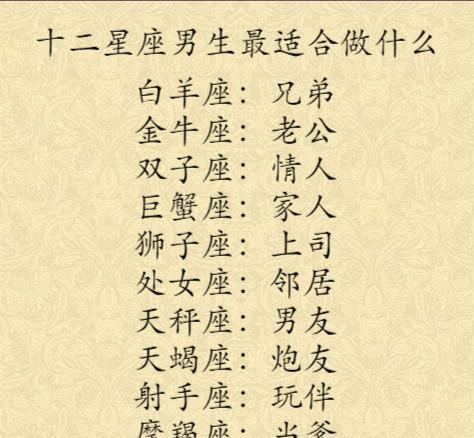 十二星座男生最适合做什么
白羊座：兄弟
金牛座：老公
双子座：情人
巨蟹座：家人
狮子座：上司
处女座：邻居
天秤座：男友
天蝎座：炮友
射手座：玩伴
摩羯座：当爹